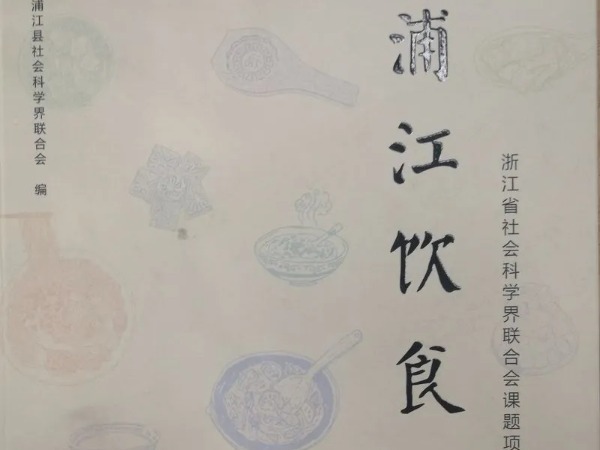 浙江省社会科学界联合会课题项
浦江饮食
浦江县社会科学界联合会 编